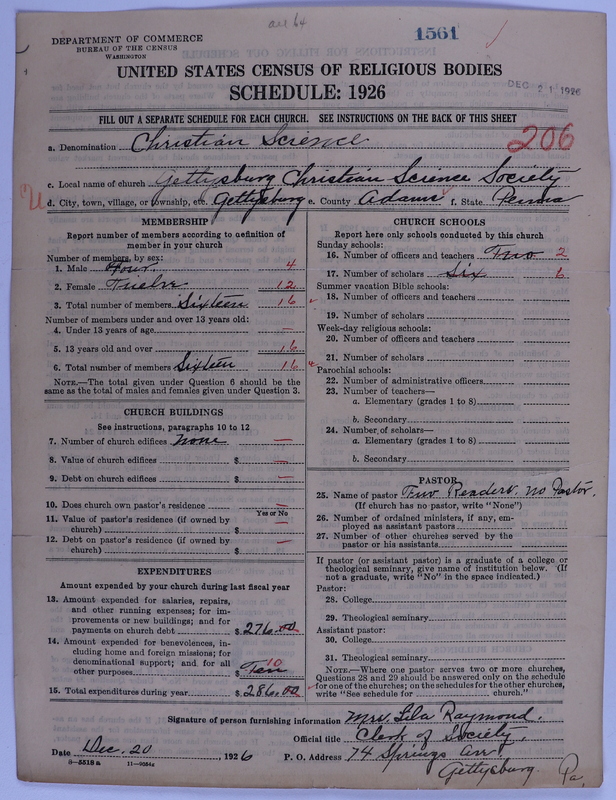 all 64
1561
DEPARTMENT OF COMMERCE
BUREAU OF THE CENSUS
WASHINGTON
UNITED STATES CENSUS OF RELIGIOUS BODIES
SCHEDULE: 1926
DEC 21 1926
FILL OUT A SEPARATE SCHEDULE FOR EACH CHURCH. SEE INSTRUCTIONS ON THE BACK OF THIS SHEET
a. Denomination Christian Science
206
c. Local name of church Gettysburg Christian Science Society
d. City, town, village, or township, etc. Gettysburg e. County Adams f. State Penna
MEMBERSHIP
Report number of members according to definition of
member in your church
Number of members, by sex:
1. Male Four 4
2. Female Twelve 12
3. Total number of members Sixteen 16
Number of members under and over 13 years old:
4. Under 13 years of age —
5. 13 years old and over 16
6. Total number of members Sixteen 16
NOTE.—The total given under Question 6 should be the
same as the total of males and females given under Question 3.
CHURCH BUILDINGS
See instructions, paragraphs 10 to 12
7. Number of church edifices none —
8. Value of church edifices $ —
9. Debt on church edifices $ —
10. Does church own pastor's residence —
Yes or No
11. Value of pastor's residence (if owned by
church) $ —
12. Debt on pastor's residence (if owned by
church) $ —
EXPENDITURES
Amount expended by your church during last fiscal year
13. Amount expended for salaries, repairs,
and other running expenses; for im-
provements or new buildings; and for
payments on church debt $ 276.00
14. Amount expended for benevolences, in-
cluding home and foreign missions; for
denominational support; and for all
other purposes $ Ten 10
15. Total expenditures during year $ 286.00
CHURCH SCHOOLS
Report here only schools conducted by this church
Sunday schools:
16. Number of officers and teachers Two 2
17. Number of scholars Six 6
Summer vacation Bible schools:
18. Number of officers and teachers
19. Number of scholars
Week-day religious schools:
20. Number of officers and teachers
21. Number of scholars
Parochial schools:
22. Number of administrative officers
23. Number of teachers—
a. Elementary (grades 1 to 8)
b. Secondary
24. Number of scholars—
a. Elementary (grades 1 to 8)
b. Secondary
PASTOR
25. Name of pastor Two Readers. no Pastor.
(If church has no pastor, write "None")
26. Number of ordained ministers, if any, em-
ployed as assistant pastors
27. Number of other churches served by the
pastor or his assistants
If pastor (or assistant pastor) is a graduate of a college or
theological seminary, give name of institution below. (If
not a graduate, write "No" in the space indicated.)
Pastor:
28. College
29. Theological seminary
Assistant pastor:
30. College
31. Theological seminary
NOTE.—Where one pastor serves two or more churches,
Questions 28 and 29 should be answered only on the schedule
for one of the churches; on the schedules for the other churches,
write "See schedule for church."
Signature of person furnishing information Mrs. Lila Raymond.
Official title Clerk of Society.
Date Dec. 20, 1926 P. O. Address 74 Springs av
Gettysburg. Pa.
8—5518 a 11—9084a